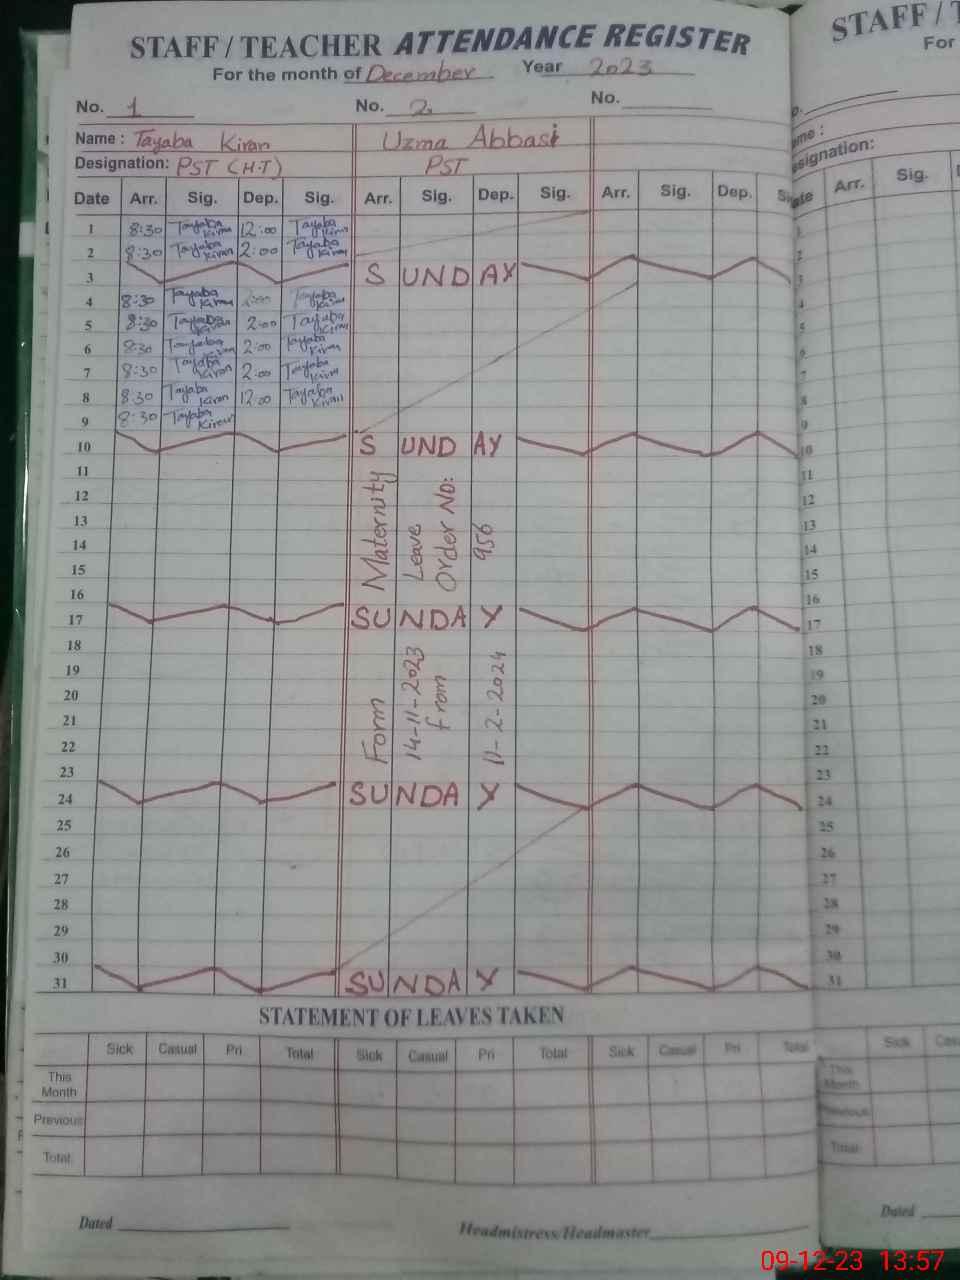 STAFF / TEACHER ATTENDANCE REGISTER
For the month of December Year 2023
No. 1 No. 2 No.
Name : Tayaba Kiran Uzma Abbasi
Designation: PST (H.T) PST
Date Arr. Sig. Dep. Sig. Arr. Sig. Dep. Sig. Arr. Sig. Dep.
1 8:30 Tayaba Kiran 12:00 Tayaba Kiran
2 8:30 Tayaba Kiran 2:00 Tayaba Kiran
3 SUNDAY
4 8:30 Tayaba Kiran 2:00 Tayaba Kiran
5 8:30 Tayaba Kiran 2:00 Tayaba Kiran
6 8:30 Tayaba Kiran 2:00 Tayaba Kiran
7 8:30 Tayaba Kiran 2:00 Tayaba Kiran
8 8:30 Tayaba Kiran 12:00 Tayaba Kiran
9 8:30 Tayaba Kiran
10 SUNDAY
11
12
13
14
15
16
Maternity
Leave
Order No:
956
17 SUNDAY
18
19
20
21
22
23
Form
14-11-2023
from
11-2-2024
24 SUNDAY
25
26
27
28
29
30
31 SUNDAY
STATEMENT OF LEAVES TAKEN
Sick Casual Pri Total Sick Casual Pri Total Sick Casual Pri Total
This Month
Previous
Total
Dated Headmistress/Headmaster
STAFF / T
For
signation:
Arr. Sig.
1
2
3
4
5
6
7
8
9
10
11
12
13
14
15
16
17
18
19
20
21
22
23
24
25
26
27
28
29
30
31
Sick
This Month
Previous
Total
Dated
09-12-23 13:57